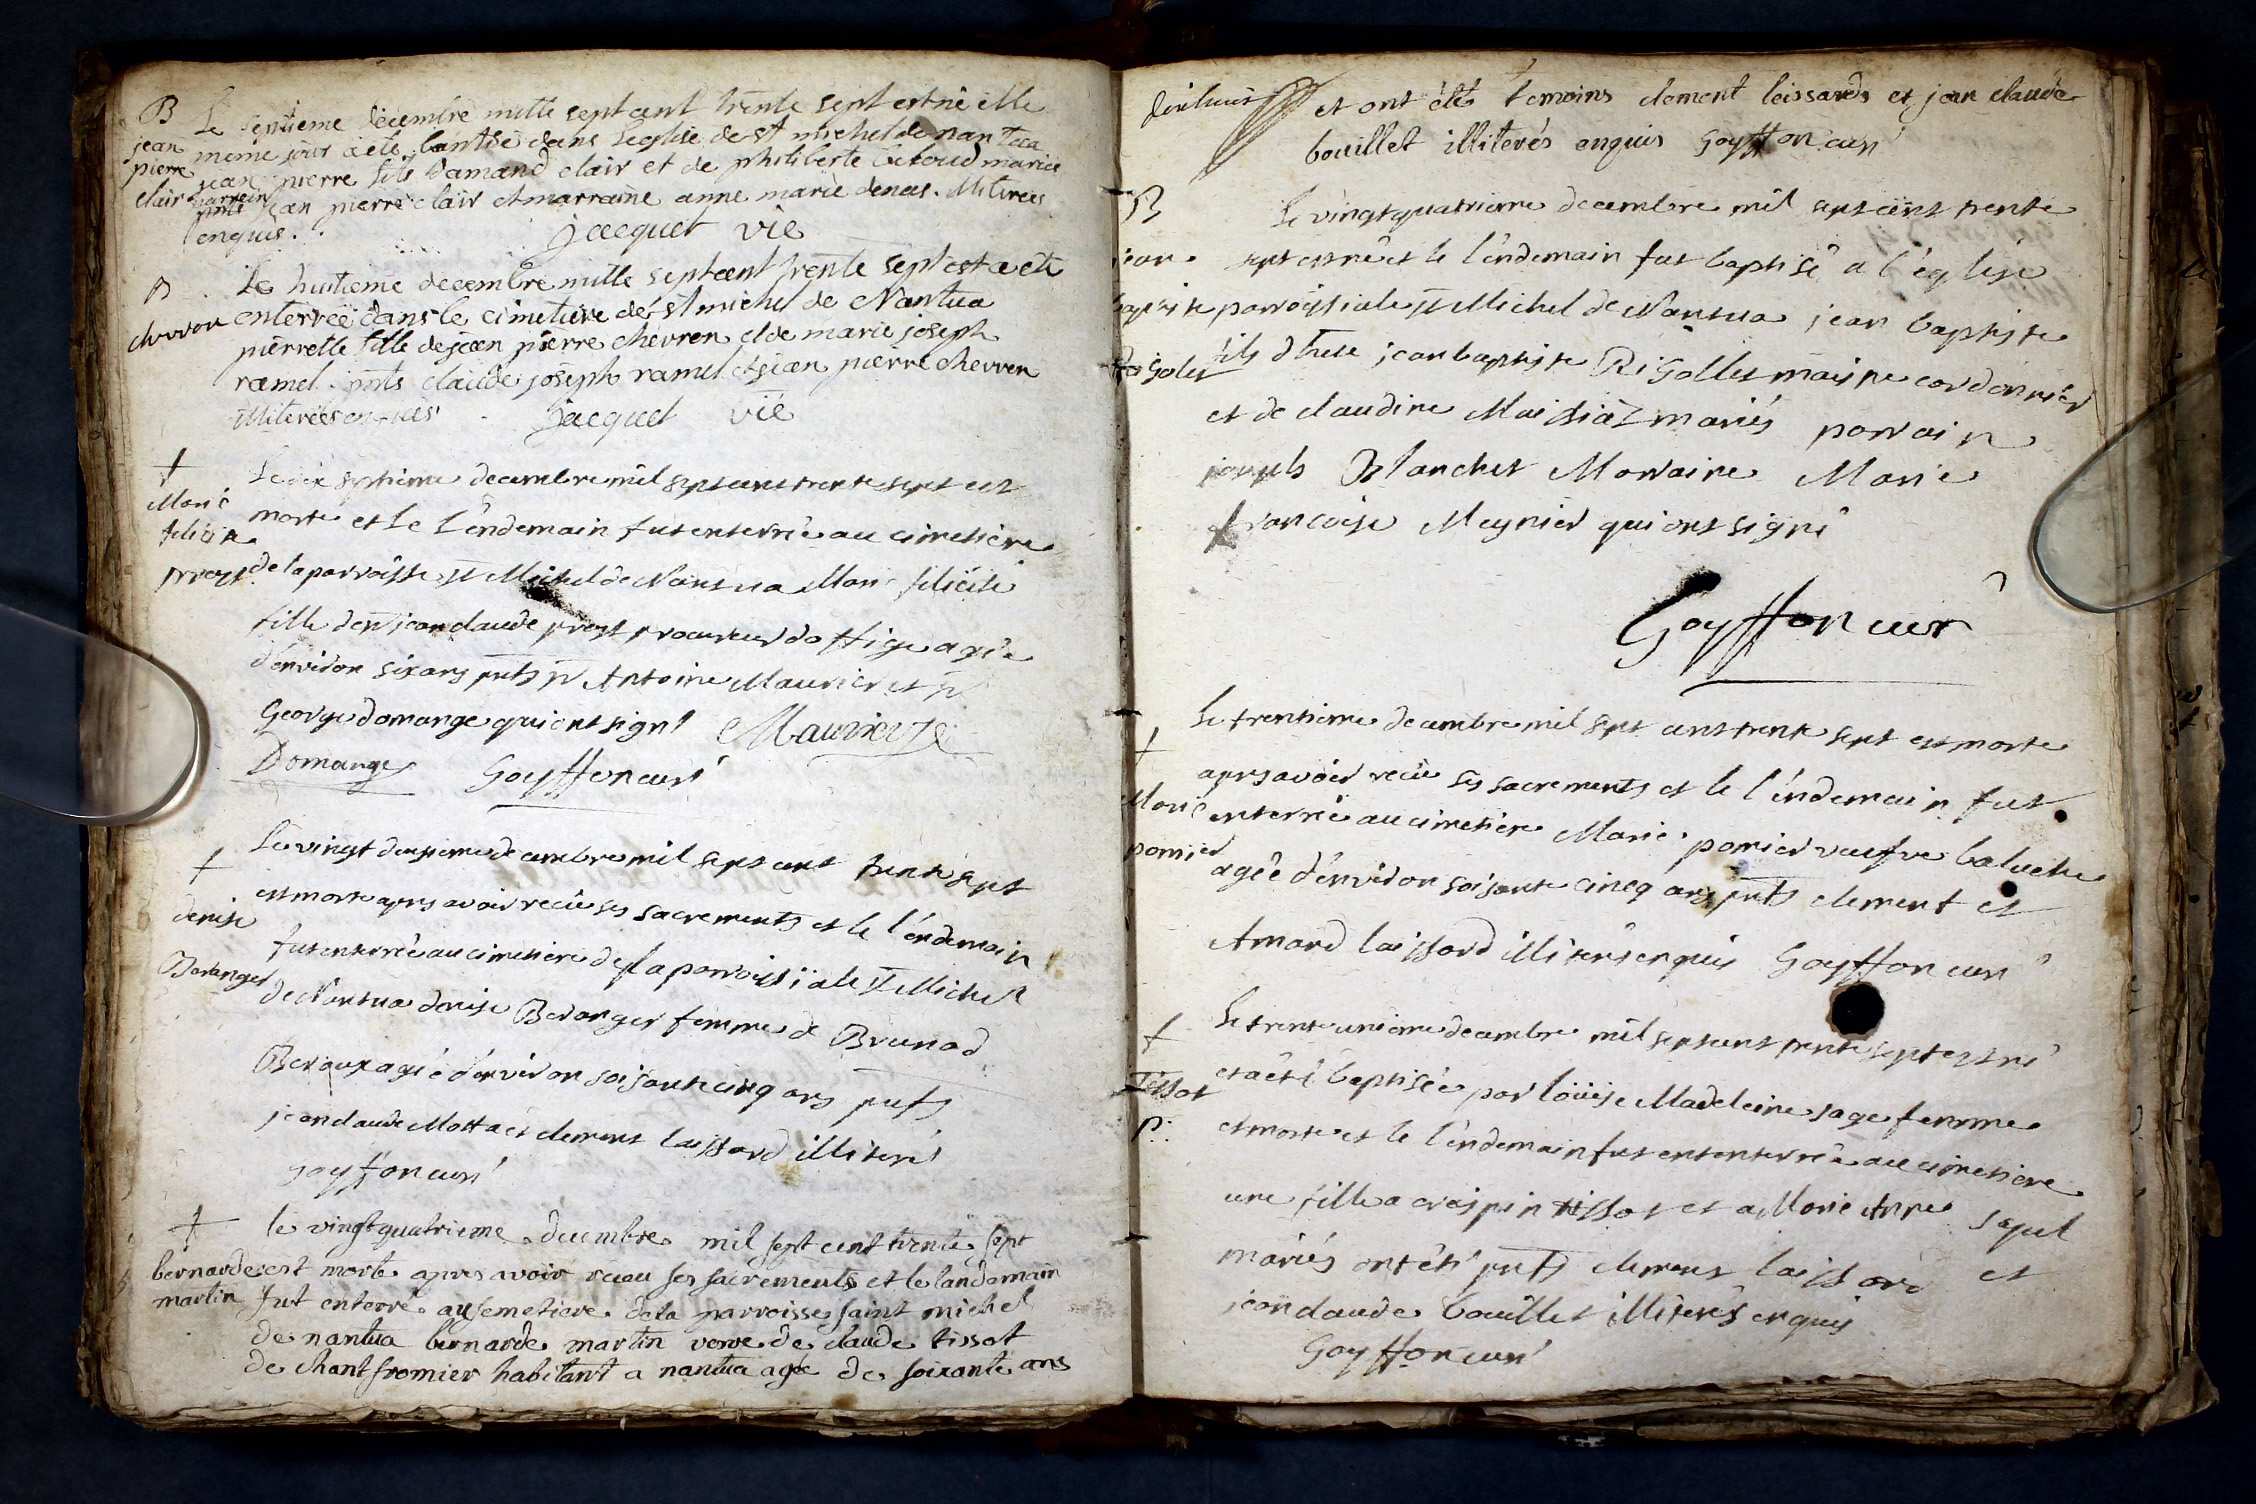 B
jean
pierre
clair
Le septieme decembre mille septcent trente sept est né et le
meme jour a ete baptisé dans l'eglise de st michel de nantua
jean pierre fils d'amand clair et de philiberte mariés
parrein jean pierre clair et marraine anne marie illiterés
enquis. jacquet vic
B
chevron
Le huitieme decembre mille septcent trente sept est a eté
enterreé dans le cimetiere de st michel de Nantua
pierrette fille de jean pierre chevren et de marie joseph
ramel pnts claude joseph ramel et jean pierre chevren
illiterées enquis jacquet vic
†
Marie
felicite
prost
Le dix septieme decembre mil sept cens trente sept est
morte et le l'endemain fut enterrée au cimetiere
de la parroisse st Michel de Nantua Marie felicité
fille de sr jean claude prost procureur d'office agée
d'environ six ans pnts sr Antoine Maurier et sr
George domange qui ont signé Maurier
Domange Goyffon curé
†
denise
Beranger
Le vingt deuxieme decembre mil sept cent trente sept
est morte aprs avoir recu ses sacrements et le l'endemain
fut enterrée au cimetiere de la parroissiale st Michel
de Nantua denise Beranger femme de Brunod
Beroux agée d'environ soisante cinq ans pnts
jean claude Motta et clement laissard illiteré
goyffon curé
†
bernarde
martin
le vingt quatrieme decembre mil sept cent trente sept
est morte apres avoir receu ses sacrements et le landemain
fut enterré au semetiere de la parroisse saint michel
de nantua bernarde martin veuve de claude tissot
de chantfromier habitant a nantua agée de soixante ans
et ont été temoins clement leissard et jean claude
bouillet illiterés enquis Goyffon curé
B
jean
baptiste
Rigolet
Le vingt quatrieme decembre mil sept cens trente
sept est né et le l'endemain fut baptisé a l'église
parroissiale st Michel de Nantua jean baptiste
fils d'heu jean baptiste Rigollet maistre cordonnier
et de claudine Maissiaz mariés parrain
joseph Blanchet Marraine Marie
françoise Meynier qui ont signé
Goyffon curé
†
Marie
pomier
Le trentieme decembre mil sept cens trente sept est morte
aprs avoir recu ses sacrements et le l'éndemain fut
enterrée au cimetiere Marie pomier veufve baluche
agée d'environ soisante cinq ans pnts clement et
Amard laissard illiterés enquis Goyffon curé
†
Tissot
Le trente unieme decembre mil sept cens trente sept est né
et a été baptisée par loüise Madeleine sage femme
et morte et le l'endemain fut enterrée au cimetiere
une fille a crespin tissot et a Marie Anne
mariés ont été pnts clement laissard et
jean claude bouillet illiterés enquis
Goyffon curé